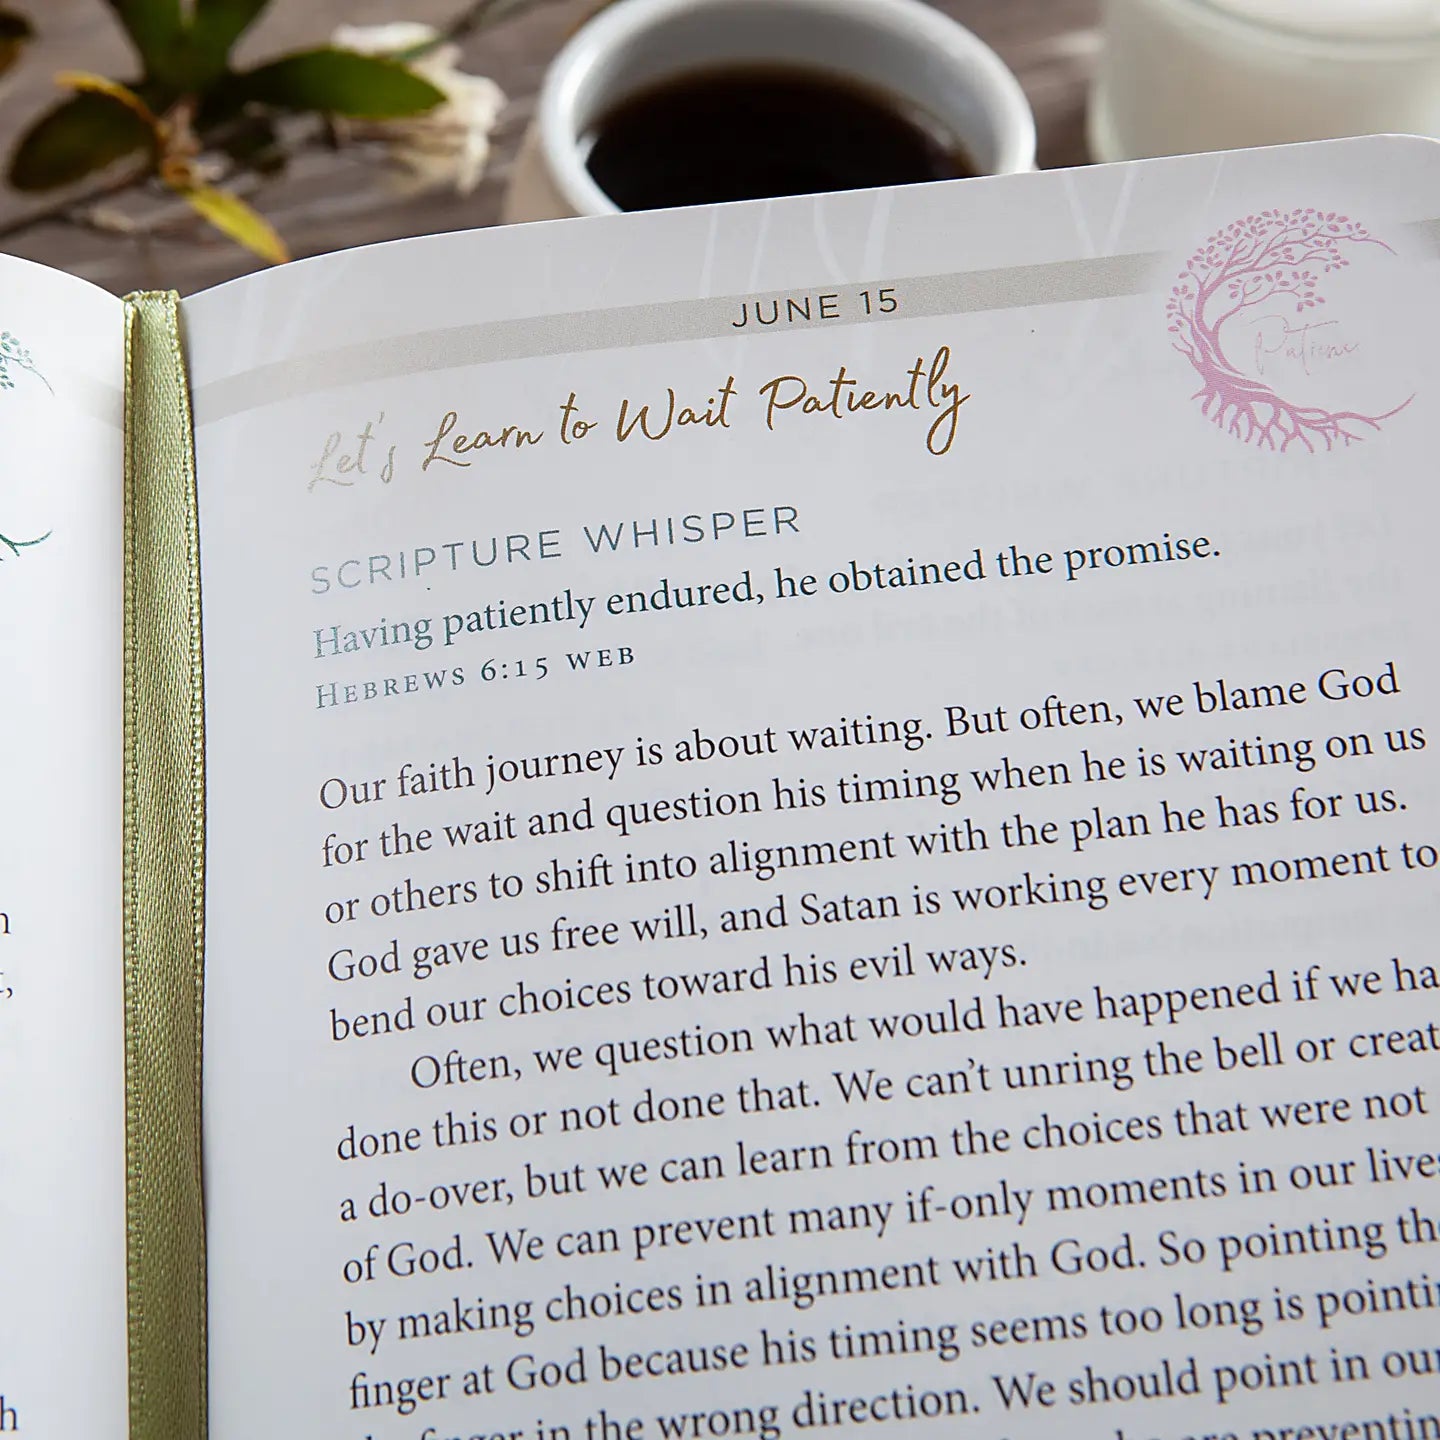 JUNE 15
Patience
Let's Learn to Wait Patiently
SCRIPTURE WHISPER
Having patiently endured, he obtained the promise.
HEBREWS 6:15 WEB
Our faith journey is about waiting. But often, we blame God
for the wait and question his timing when he is waiting on us
or others to shift into alignment with the plan he has for us.
God gave us free will, and Satan is working every moment to
bend our choices toward his evil ways.
Often, we question what would have happened if we ha
done this or not done that. We can't unring the bell or creat
a do-over, but we can learn from the choices that were not
of God. We can prevent many if-only moments in our lives
by making choices in alignment with God. So pointing th
finger at God because his timing seems too long is pointi
finger in the wrong direction. We should point in our
are preventin